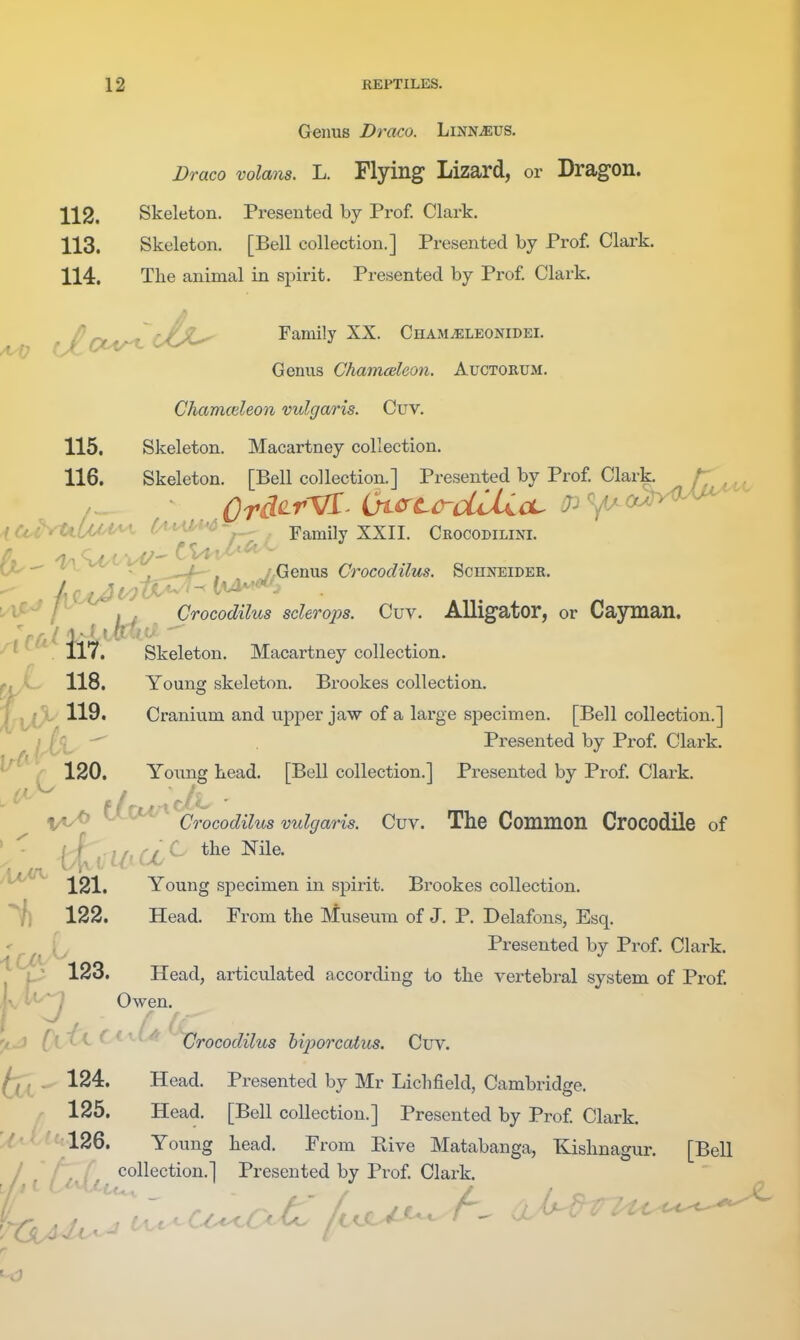 12 REPTILES.
Genus Draco. LINNÆUS.
Draco volans. L. Flying Lizard, or Dragon.
112. Skeleton. Presented by Prof. Clark.
113. Skeleton. [Bell collection.] Presented by Prof. Clark.
114. The animal in spirit. Presented by Prof. Clark.
Family XX. CHAMÆLEONIDEI.
Genus Chamæleon. AUCTORUM.
Chamæleon vulgaris. CUV.
115. Skeleton. Macartney collection.
116. Skeleton. [Bell collection.] Presented by Prof. Clark.
Order VI. Crocodilia
Family XXII. CROCODILINI.
Genus Crocodilus. SCHNEIDER.
Crocodilus sclerops. CUV. Alligator, or Cayman.
117. Skeleton. Macartney collection.
118. Young skeleton. Brookes collection.
119. Cranium and upper jaw of a large specimen. [Bell collection.]
Presented by Prof. Clark.
120. Young head. [Bell collection.] Presented by Prof. Clark.
Crocodilus vulgaris. CUV. The Common Crocodile of
the Nile.
121. Young specimen in spirit. Brookes collection.
122. Head. From the Museum of J. P. Delafons, Esq.
Presented by Prof. Clark.
123. Head, articulated according to the vertebral system of Prof.
Owen.
Crocodilus biporcatus. CUV.
124. Head. Presented by Mr Lichfield, Cambridge.
125. Head. [Bell collection.] Presented by Prof. Clark.
126. Young head. From Rive Matabanga, Kishnagur. [Bell
collection.] Presented by Prof. Clark.